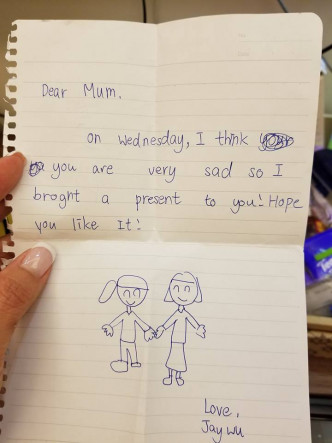 Dear Mum,
on Wednesday, I think
you are very sad so I
broght a present to you! Hope
you like It!
Love,
Jay Wu